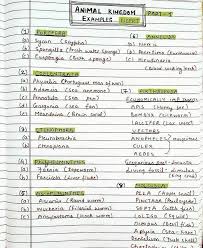 ANIMAL KINGDOM
EXAMPLES PART-1
(1) PORIFERA
a) Sycon (Scypha)
b) Spongilla (fresh water sponge)
c) Euspongia (bath sponge)
(2) COELENTERATA
a) Physalia (Portuguese man of war)
b) Adamsia (sea anemone)
c) Pennatula (sea pen)
d) Gorgonia (sea fan)
e) Meandrina (Brain coral)
(3) CTENOPHORA
Pleurobrachia
Ctenoplana
(4) PLATYHELMINTHES
a) Taenia (Tapeworm)
b) Fasciola (liver fluke)
(5) ASCHELMINTHES
a) Ascaris (Round worm)
b) Wuchereria (filaria worm)
c) Ancylostoma (hook worm)
(6) ANNELIDA
a) Nereis
c) Hirudinaria
(blood sucking leech)
(7) ARTHROPODA
ECONOMICALLY IMPORTANT
APIS (Honey bee)
BOMBYX (silkworm)
LACCIFER (lac insect)
VECTORS
ANOPHELES
CULEX
AEDES
Living fossil - Limulus
(king crab)
(8) MOLLUSCA
PILA (Apple snail)
PINCTADA (Pearl oyster)
SEPIA (Cuttle fish)
LOLIGO (Squid)
OCTOPUS (Devil fish)
APLYSIA (Sea hare)
DENTALIUM (Tusk shell)